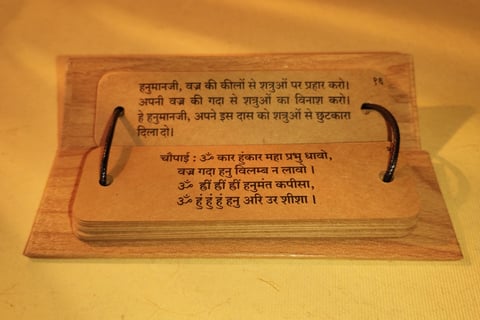 हनुमानजी, वज्र की कीलों से शत्रुओं पर प्रहार करो। १६
अपनी वज्र की गदा से शत्रुओं का विनाश करो।
हे हनुमानजी, अपने इस दास को शत्रुओं से छुटकारा
दिला दो।
चौपाई : ॐ कार हुंकार महा प्रभु धावो,
वज्र गदा हनु विलम्ब न लावो ।
ॐ ह्रीं ह्रीं ह्रीं हनुमंत कपीसा,
ॐ हुं हुं हुं हनु अरि उर शीशा ।